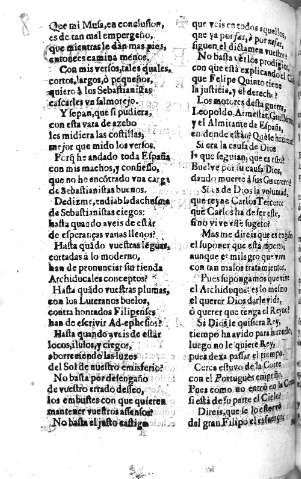 Que mi Musa, en conclusion,
es de tan mal empergeño,
que mientras le dàn mas pies,
entonces camina menos.
Con mis versos, tales quales,
cortos, largos, ò pequeños,
quiero à los Sebastianistas
cascarles vn salmorejo.
Y sepan, que si pudiera,
con esta vara de azebo
les midiera las costillas,
mejor que mido los versos.
Porq̃ he andado toda España
con mis machos, y confiesso,
que no he encontrado vna carga
de Sebastianistas buenos.
Dezidme, endiablada chusma
de Sebastianistas ciegos:
hasta quando aveis de estàr
de esperanças vanas llenos?
Hasta quãdo vuestras lenguas,
cortadas à lo moderno,
han de pronunciar sin rienda
Archiducales conceptos?
Hasta quãdo vuestras plumas,
con los Luteranos buelos,
contra honrados Filipenses
han de escrivir Ad-ephesios?
Hasta quando aveis de estàr
locos, ilusos, y ciegos,
aborreciendo las luzes
del Sol de nuestro emisferio?
No basta por desengaño
de vuestro errado desseo,
los embustes con que quieren
mantener vuestros assensos?
No basta el justo castigo
que veis en todos aquellos,
que ya por fas, ò por nefas,
siguen el dictamen vuestro?
No basta vèr los prodigios
con que està explicando el Cielo
que Felipe Quinto tiene
la justicia, y el derecho?
Los motores desta guerra,
Leopoldo, Armestat, Guillermo,
el Almirante de España,
en donde estàn? Què se hizieron?
Si era la causa de Dios
lo que seguian, que es esto?
Buelve por su causa Dios,
dando muerte à sus Guerreros?
Si es de Dios la voluntad,
que reyne Carlos Tercero:
què Carlos ha de ser este,
sino vive este sugeto?
Mas me direis que es engaño
el suponer que està enfermo,
aunque es milagro que viva
con tan malos tratamientos.
Pues supongamos que vive
el Archiduque: es lo mesmo
el querer Dios darle vida,
ò querer que tenga el Reyno?
Si Dios le quisiera Rey,
tiempo ha avido para serlo,
luego no le quiere Rey,
pues dexa passar el tiempo.
Cerca estuvo de la Corte
con el Portuguès empeño,
Pues como no entrò en ella,
si està de su parte el Cielo?
Direis, que se lo estorvò
del gran Filipo el esfuerço